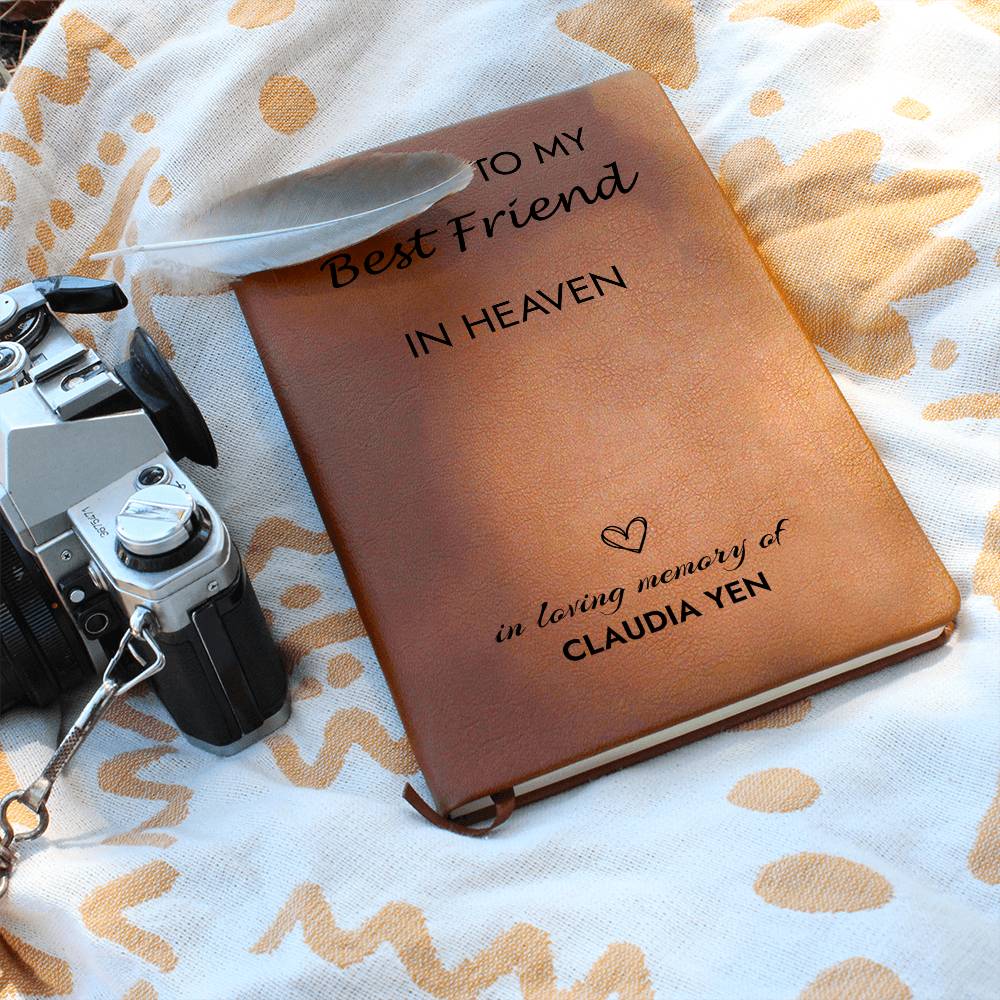 TO MY
Best Friend
IN HEAVEN
in loving memory of
CLAUDIA YEN